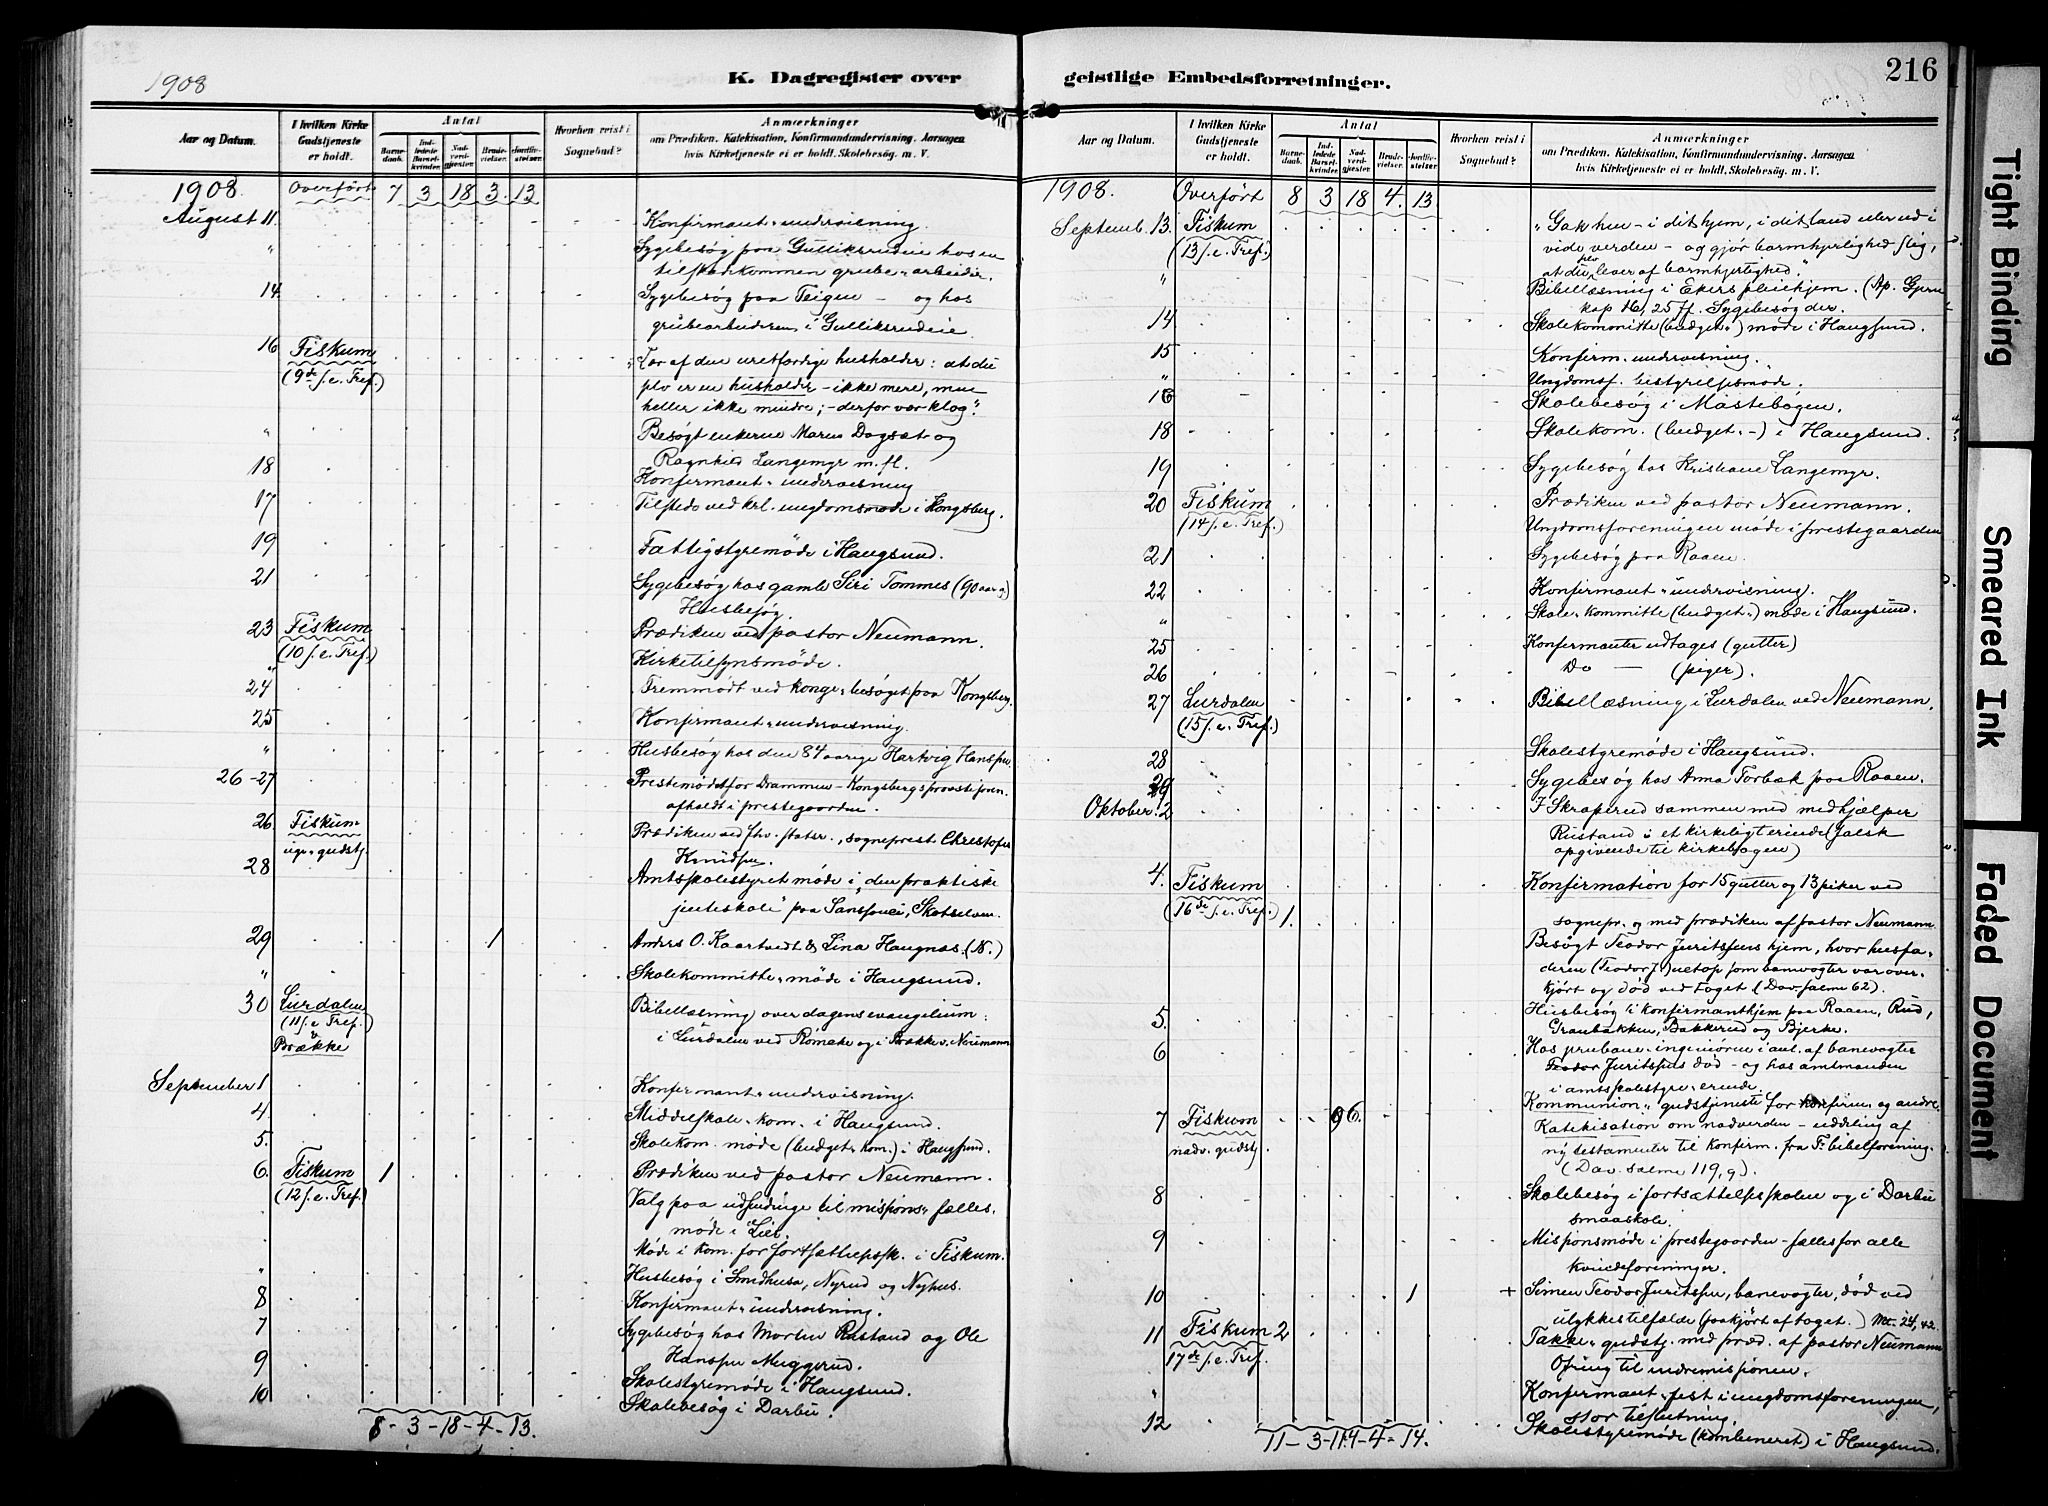 1908
K. Dagregister over
Aar og Datum.
I hvilken Kirke Gudstjeneste er holdt.
Antal
Barnedaab.
Indledede Barselkvinder.
Nadverdgjester.
Brudevielser.
Jordfæstelser.
Hvorhen reist i Sognebud?
Anmærkninger
om Prædiken, Katekisation, Konfirmandundervisning, Aarsagen
hvis Kirketjeneste ei er holdt, Skolebesøg. m. V.
1908. Overført 7 3 18 3. 13
August 11. Konfirmant-undervisning.
" Sygebesøg paa Gulliksrudeie hos en
tilskadekommen grube-arbeider.
14 Sygebesøg paa Teigen - og hos
grubearbeideren i Gulliksrudeie
16 Fiskum "Lær af den uretfærdige husholder: at du
(9de s. e. Tref.) blv er en husholder - ikke mere, men
heller ikke mindre; - derfor vær klog".
" Besøgt enkerne Maren Dagsæt og
Ragnhild Langemyr m. fl.
18 Konfirmant-undervisning
17 Tilstede ved krl. ungdomsmøde i Kongsberg.
19 Fattigstyremøde i Haugsund.
21 Sygebesøg hos gamle Siri Tommes (90 aar g.)
Husbesøg.
23 Fiskum Prædiken ved pastor Neumann.
(10 s. e. Tref.)
" Kirketilsynsmøde.
24 Fremmødt ved konge-besøget paa Kongsberg.
25 Konfirmant-undervisning.
" Husbesøg hos den 84 aarige Hartvig Hanssen.
26-27 Prestemødet for Drammen-Kongsbergs provsti
afholdt i prestegaarden.
26 Fiskum Prædiken ved sogneprest Christofer
uge-gudstj. Knudsen.
28 Amtsskolestyret møde i "den praktiske
jenteskole" paa Sanssouci, Skotselven.
29 1 Anders O. Kaartvedt & Lina Haugnæs. (N.)
" Skolekommitte-møde i Haugsund.
30 Lurdalen Bibellæsning over dagens evangelium:
(11 s. e. Tref.) i Lurdalen ved Rømcke og i Brække v. Neumann
& Brække
September 1 Konfirmant-undervisning.
4 Middelskole-kom. i Haugsund.
5. Skolekom. møde (budget-kom.) i Haugsund.
6. Fiskum 1 Prædiken ved pastor Neumann.
(12 s. e. Tref.) Valg paa udsendinge til missions-fælles-
møde i Lier.
Møde i kom. for fortsættelsessk. i Fiskum.
" Husbesøg i Smidhusa, Nyrud og Nyhus.
8 Konfirmant-undervisning.
7 Sygebesøg hos Morten Rustand og Ole
Hanssen Muggerud.
9 Skolestyremøde i Haugsund.
10 Skolebesøg i Darbu.
8 - 3 - 18 - 4 - 13.
geistlige Embedsforretninger.
216
Aar og Datum.
I hvilken Kirke Gudstjeneste er holdt.
Antal
Barnedaab.
Indledede Barselkvinder.
Nadverdgjester.
Brudevielser.
Jordfæstelser.
Hvorhen reist i Sognebud?
Anmærkninger
om Prædiken, Katekisation, Konfirmandundervisning, Aarsagen
hvis Kirketjeneste ei er holdt, Skolebesøg. m. V.
1908. Overført 8 3 18 4. 13
Septemb. 13. Fiskum "Gak hen - i dit hjem, i dit land eller ud i
(13 s. e. Tref.) vide verden - og gjør barmhjertighed slig,
at du blv lever af barmhjertighed."
" Bibellæsning i Ekers pleiehjem. (Ap. Gjern
kap 16, 25 ff. Sygebesøg der.
14 Skolekommitte (budget-) møde i Haugsund.
15 Konfirm. undervisning.
" Ungdomsf. bestyrelsesmøde.
16 Skolebesøg i Mastebogen.
18 Skolekom. (budget-) i Haugsund.
19 Sygebesøg hos Kristiane Langemyr.
20 Fiskum Prædiken ved pastor Neumann.
(14 s. e. Tref.) Ungdomsforeningen møde i prestegaarden
21 Sygebesøg paa Raaen.
22 Konfirmant-undervisning.
" Skole-kommitte (budget-) møde i Haugsund.
25 Konfirmanter udtages (gutter)
26 Do — (piger).
27 Lurdalen Bibellæsning i Lurdalen ved Neumann.
(15 s. e. Tref.)
28 Skolestyremøde i Haugsund.
29 Sygebesøg hos Anna Torbæk paa Raaen.
Oktober 2 I Skraperud sammen med medhjælper
Rustand i et kirkeligt erinde (falsk
opgivende til kirkebogen)
4. Fiskum Konfirmation for 15 gutter og 13 piker ved
(16de s. e. Tref.) 1. sognepr. og med prædiken af pastor Neumann
Besøgt Teodor Juritssens hjem, hvor husfa-
deren (Teodor J.) netop som banevogter var over-
kjørt og død ved toget (Dav. salme 62).
5. Husbesøg i konfirmanthjem paa Raaen, Rud,
Granbakken, Bakkerud og Bjerke.
6 Hos ingeniøren i anl. af banevogter
Teodor Juritssens død - og hos amtmanden
i amtsskolestyre-erinde.
7 Fiskum 96. Kommunion-gudstjeneste for konfirm. og andre.
nadv. gudstj. Katekisation om nadverden - uddeling af
ny testamenter til konfirm. fra F. bibelforening.
(Dav. salme 119, 9)
8 Skolebesøg i fortsættelsesskolen og i Darbu
smaaskole.
9 Missionsmøde i prestegaarden - fælles for alle
kvindeforeninger.
10 1 + Simen Teodor Juritssen, banevogter, død ved
ulykkestilfælde (paakjørt af toget.) Mt. 24, 42.
11 Fiskum 2 Takke-gudstj. med præd. af pastor Neumann
17de s. e. Tref. Ofring til indremissionen.
" Konfirmant-fest i ungdomsforeningen,
stor tilslutning.
12 Skolestyremøde (kombineret) i Haugsund.
11 - 3 - 114 - 4 - 14.
Tight Binding
Smeared Ink
Faded Document